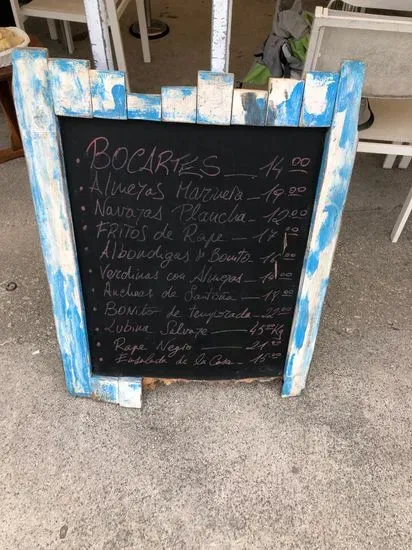 BOCARTES — 14 00
Almejas Marinera — 19.00
Navajas Plancha — 00
FRITOS de Rape — 17 00
Albondigas de Bonito — 00
Verdinas con Almejas — 00
Anchoas de Santoña — 18.00
BONITO de temporada — 22.00
Lubina Salvaje — 45 €/Kg
Rape Negro — 21.00
Ensalada de la Casa — 15.00